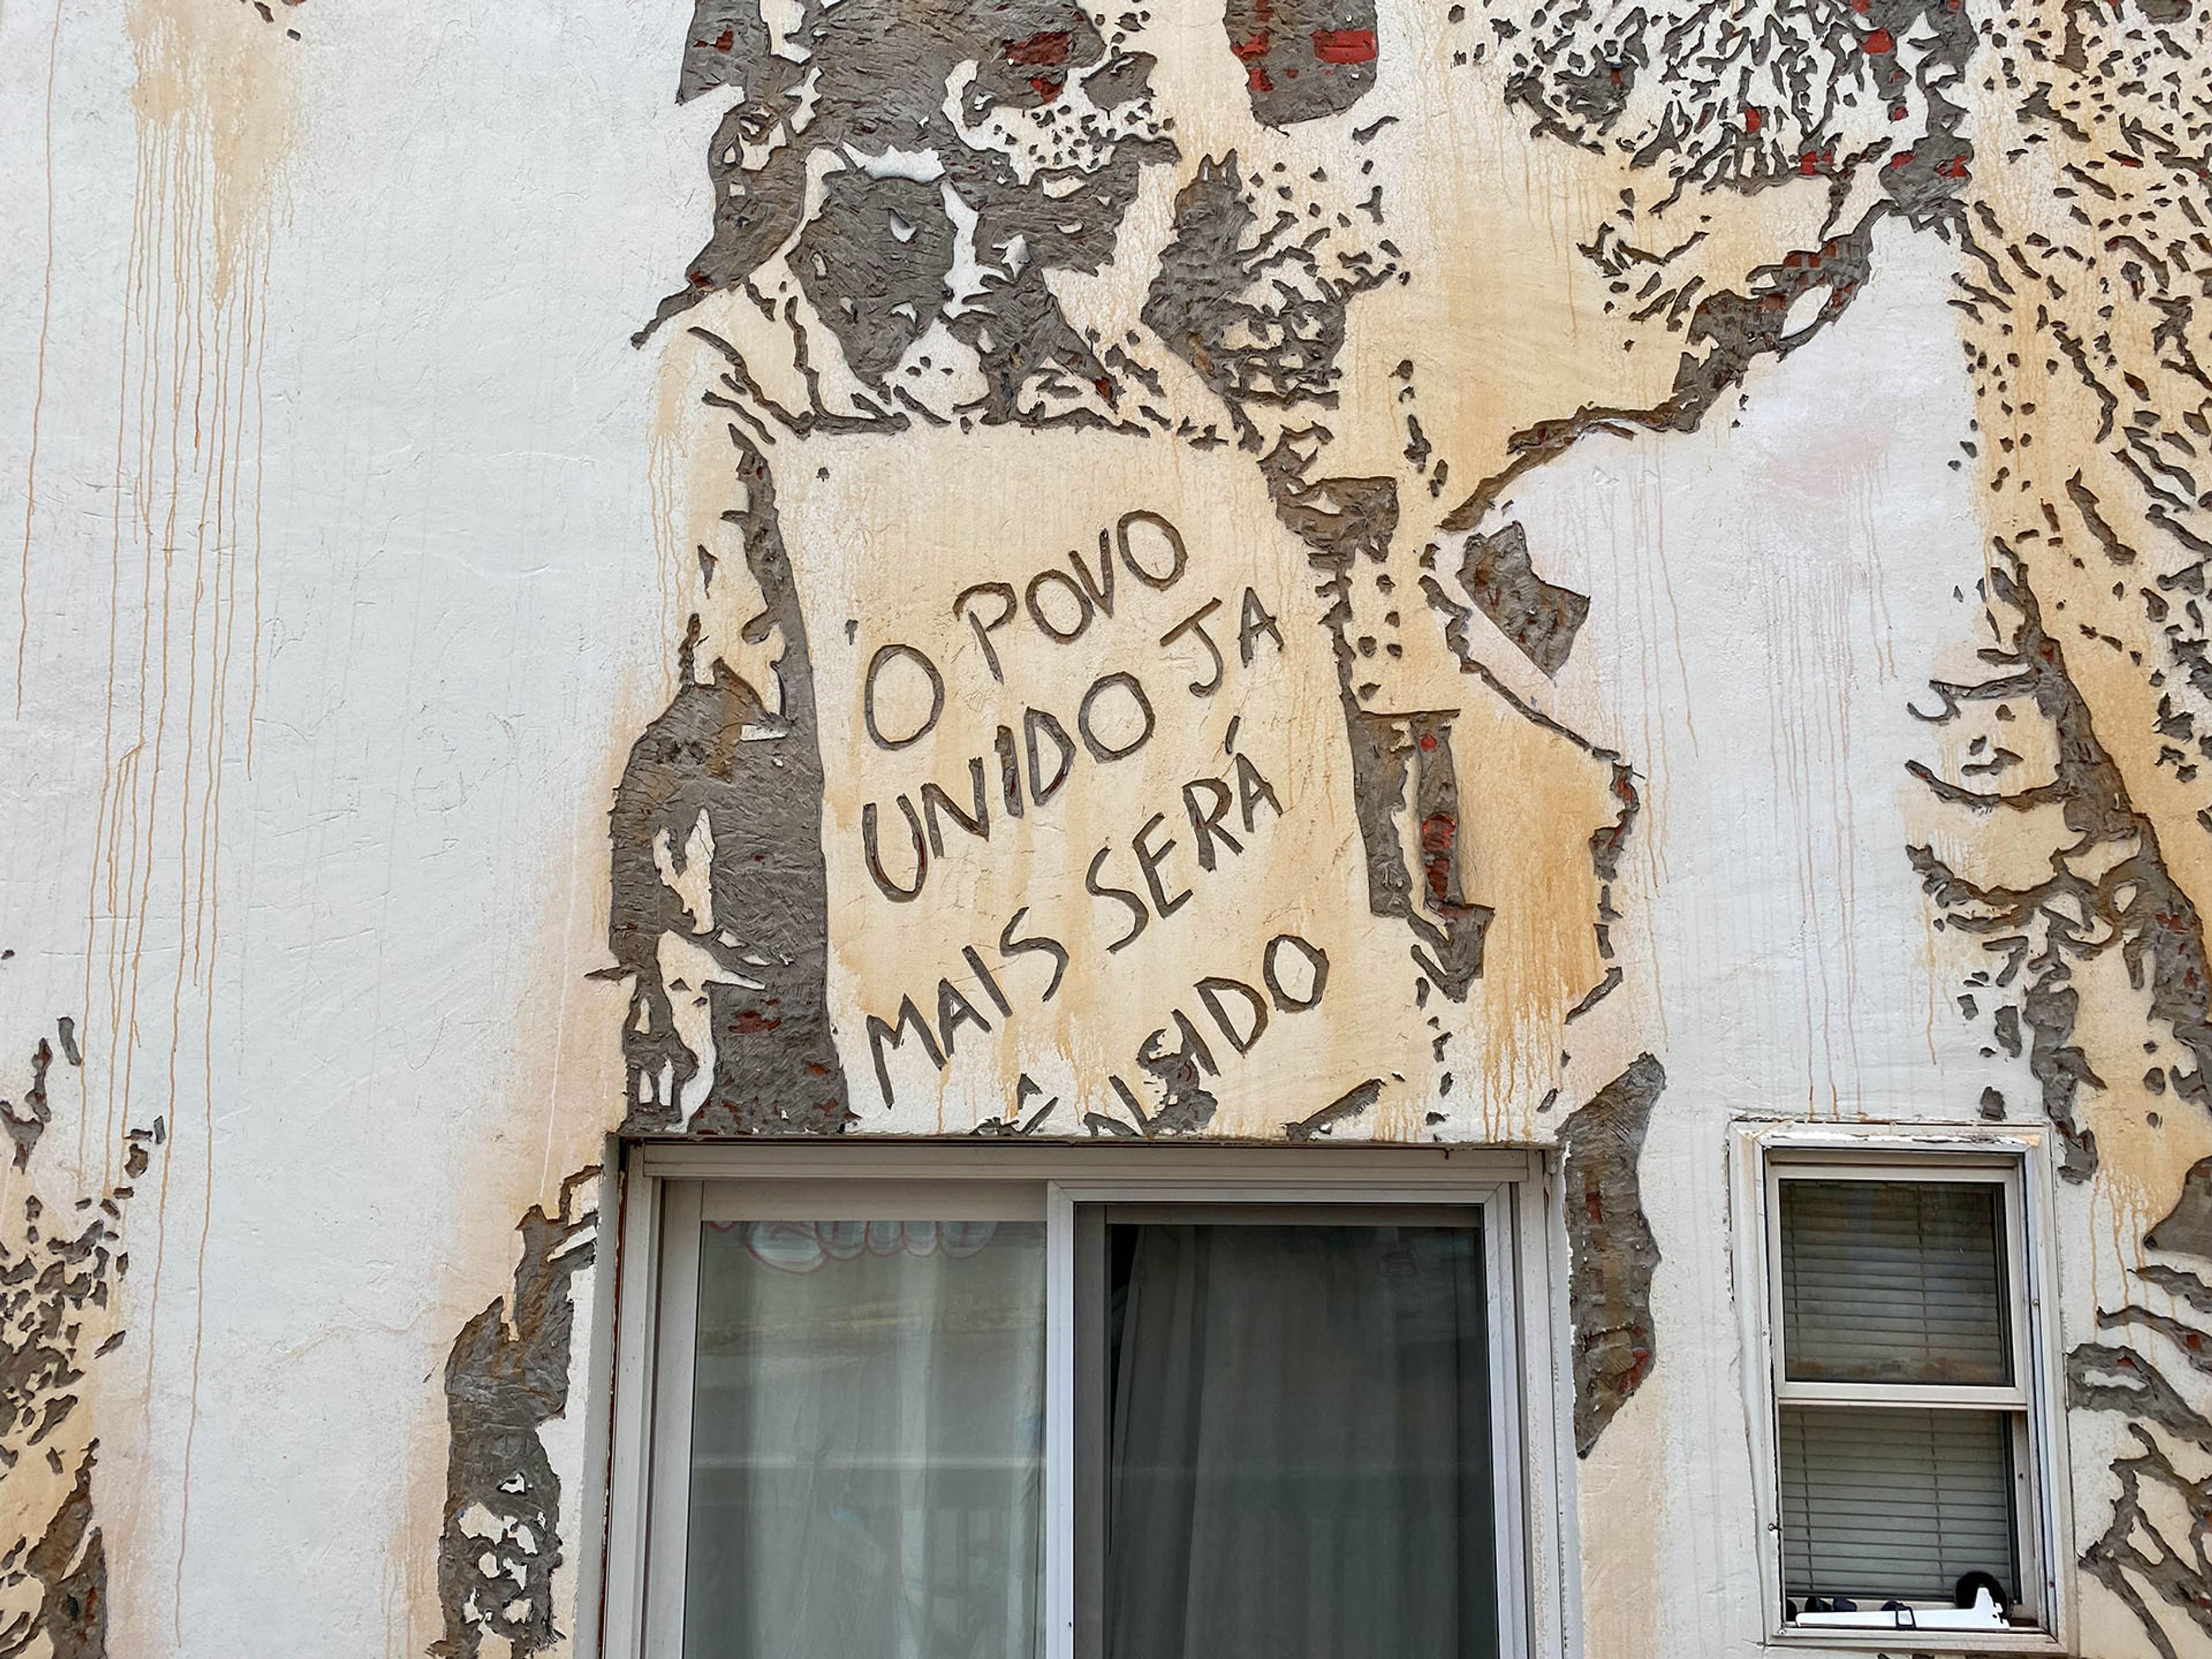 O POVO
UNIDO JA
MAIS SERÁ